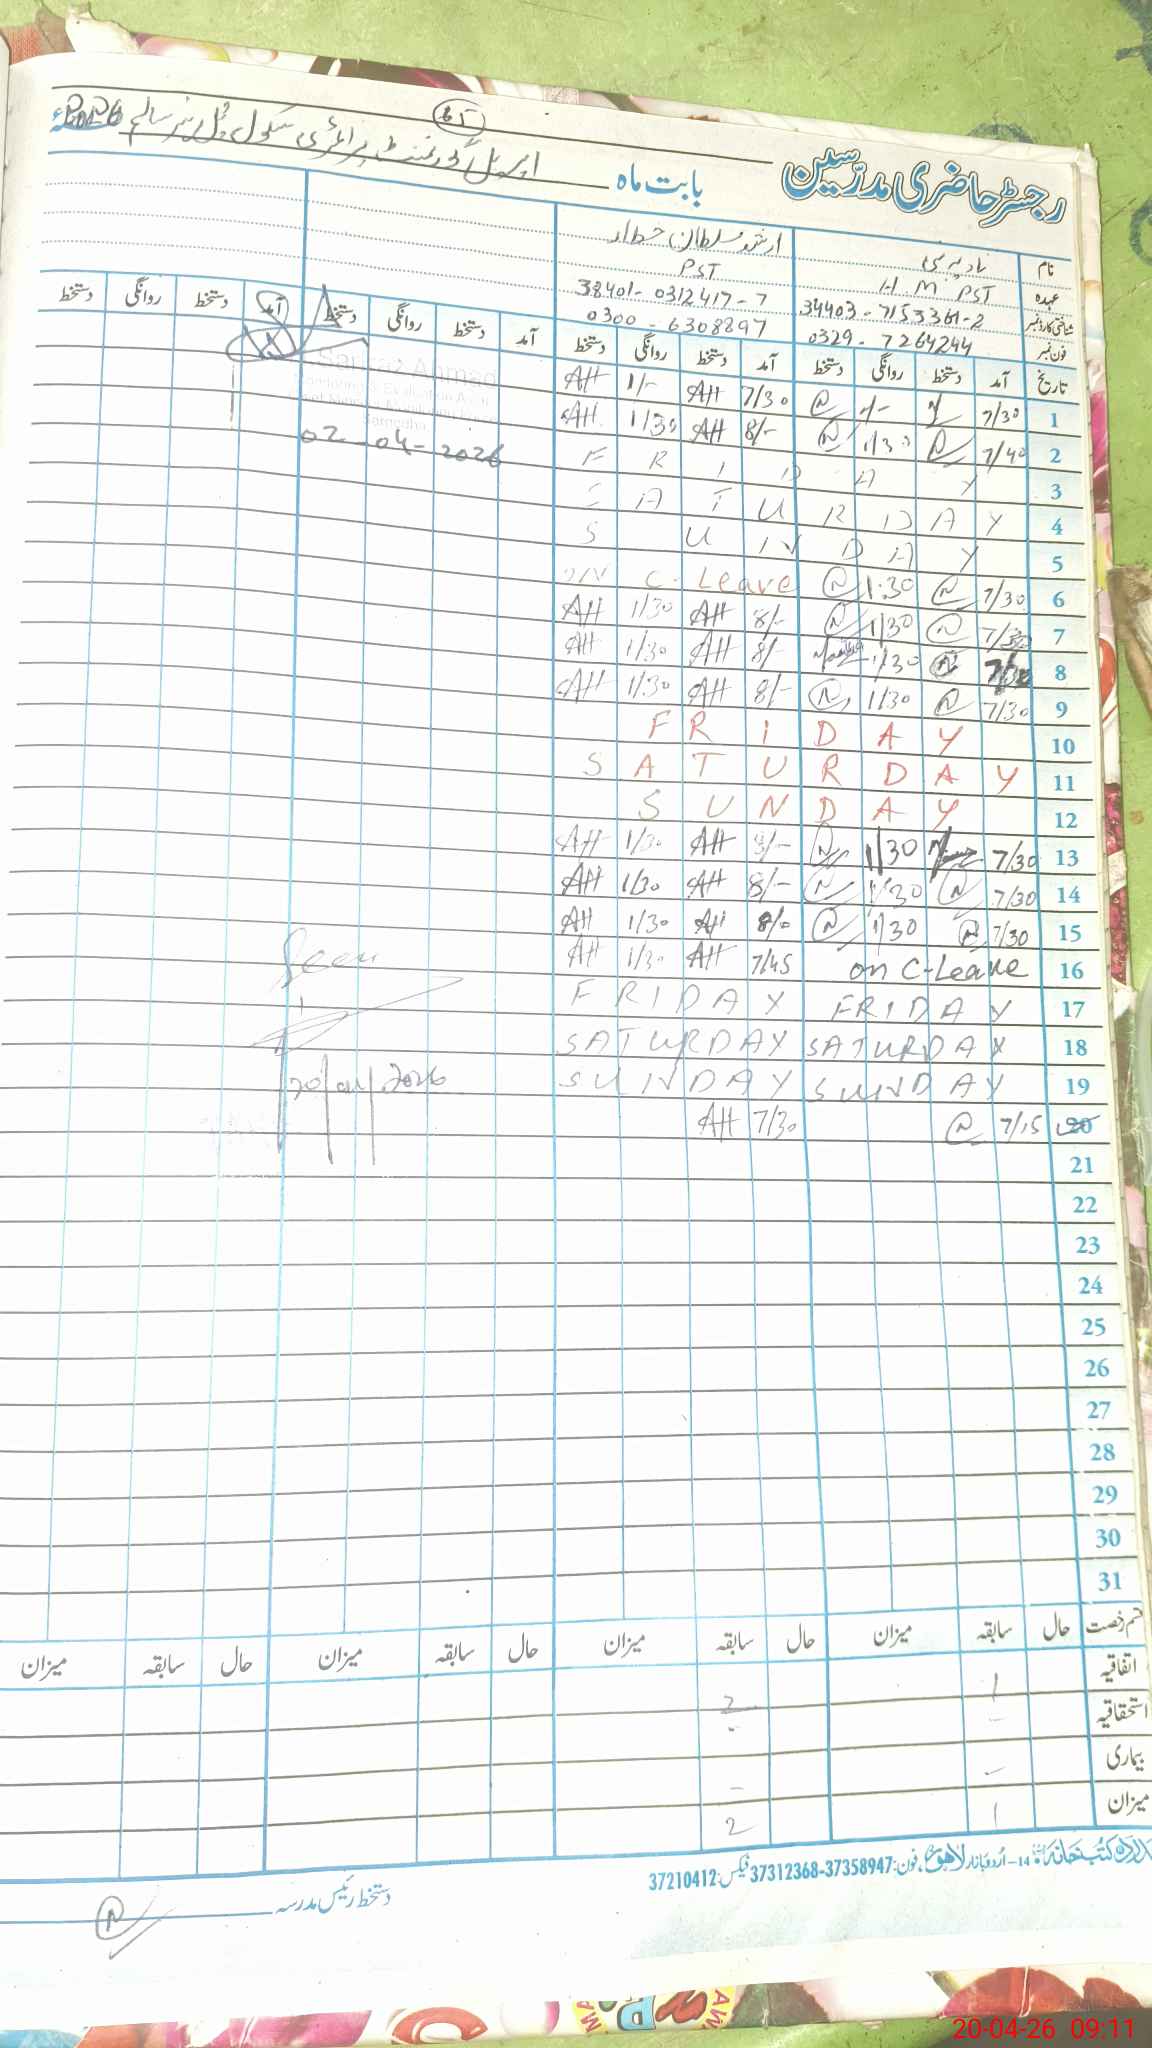 رجسٹر حاضری مدرسین بابت ماہ اپریل گورنمنٹ پرائمری سکول 2026ء
نام
عہدہ H.M PST PST
شناختی کارڈ نمبر 34403-7153361-2 38401-0312417-7
فون نمبر 0329-7264244 0300-6308897
تاریخ آمد دستخط روانگی دستخط آمد دستخط روانگی دستخط آمد دستخط روانگی دستخط آمد دستخط روانگی دستخط
1 7/30 7/30 AH 1/- AH
Sarfraz Ahmad
2 7/40 1/30 8/- AH 1/30 AH
02-04-2026
3 FRIDAY
4 SATURDAY
5 SUNDAY
6 7/30 1:30 C-Leave
7 1/30 8/- AH 1/30 AH
8 7/30 1/30 8/- AH 1/30 AH
9 7/30 1/30 8/- AH 1/30 AH
10 FRIDAY
11 SATURDAY
12 SUNDAY
13 7/30 1/30 8/- AH 1/30 AH
14 7/30 1/30 8/- AH 1/30 AH
15 7/30 1/30 8/0 AH 1/30 AH
16 on C-Leave 7/45 AH 1/30 AH
Seen
17 FRIDAY FRIDAY
18 SATURDAY SATURDAY
19 SUNDAY SUNDAY
20/04/2026
20 7/15 7/30 AH
21
22
23
24
25
26
27
28
29
30
31
قسم رخصت حال سابقہ میزان حال سابقہ میزان حال سابقہ میزان حال سابقہ میزان
اتفاقیہ 1 2
استحقاقیہ - -
بیماری - -
میزان 1 2
کتب خانہ 14-اردو بازار لاہور، فون: 37358947-37312368 فیکس: 37210412
دستخط رئیس مدرسہ
20-04-26 09:11